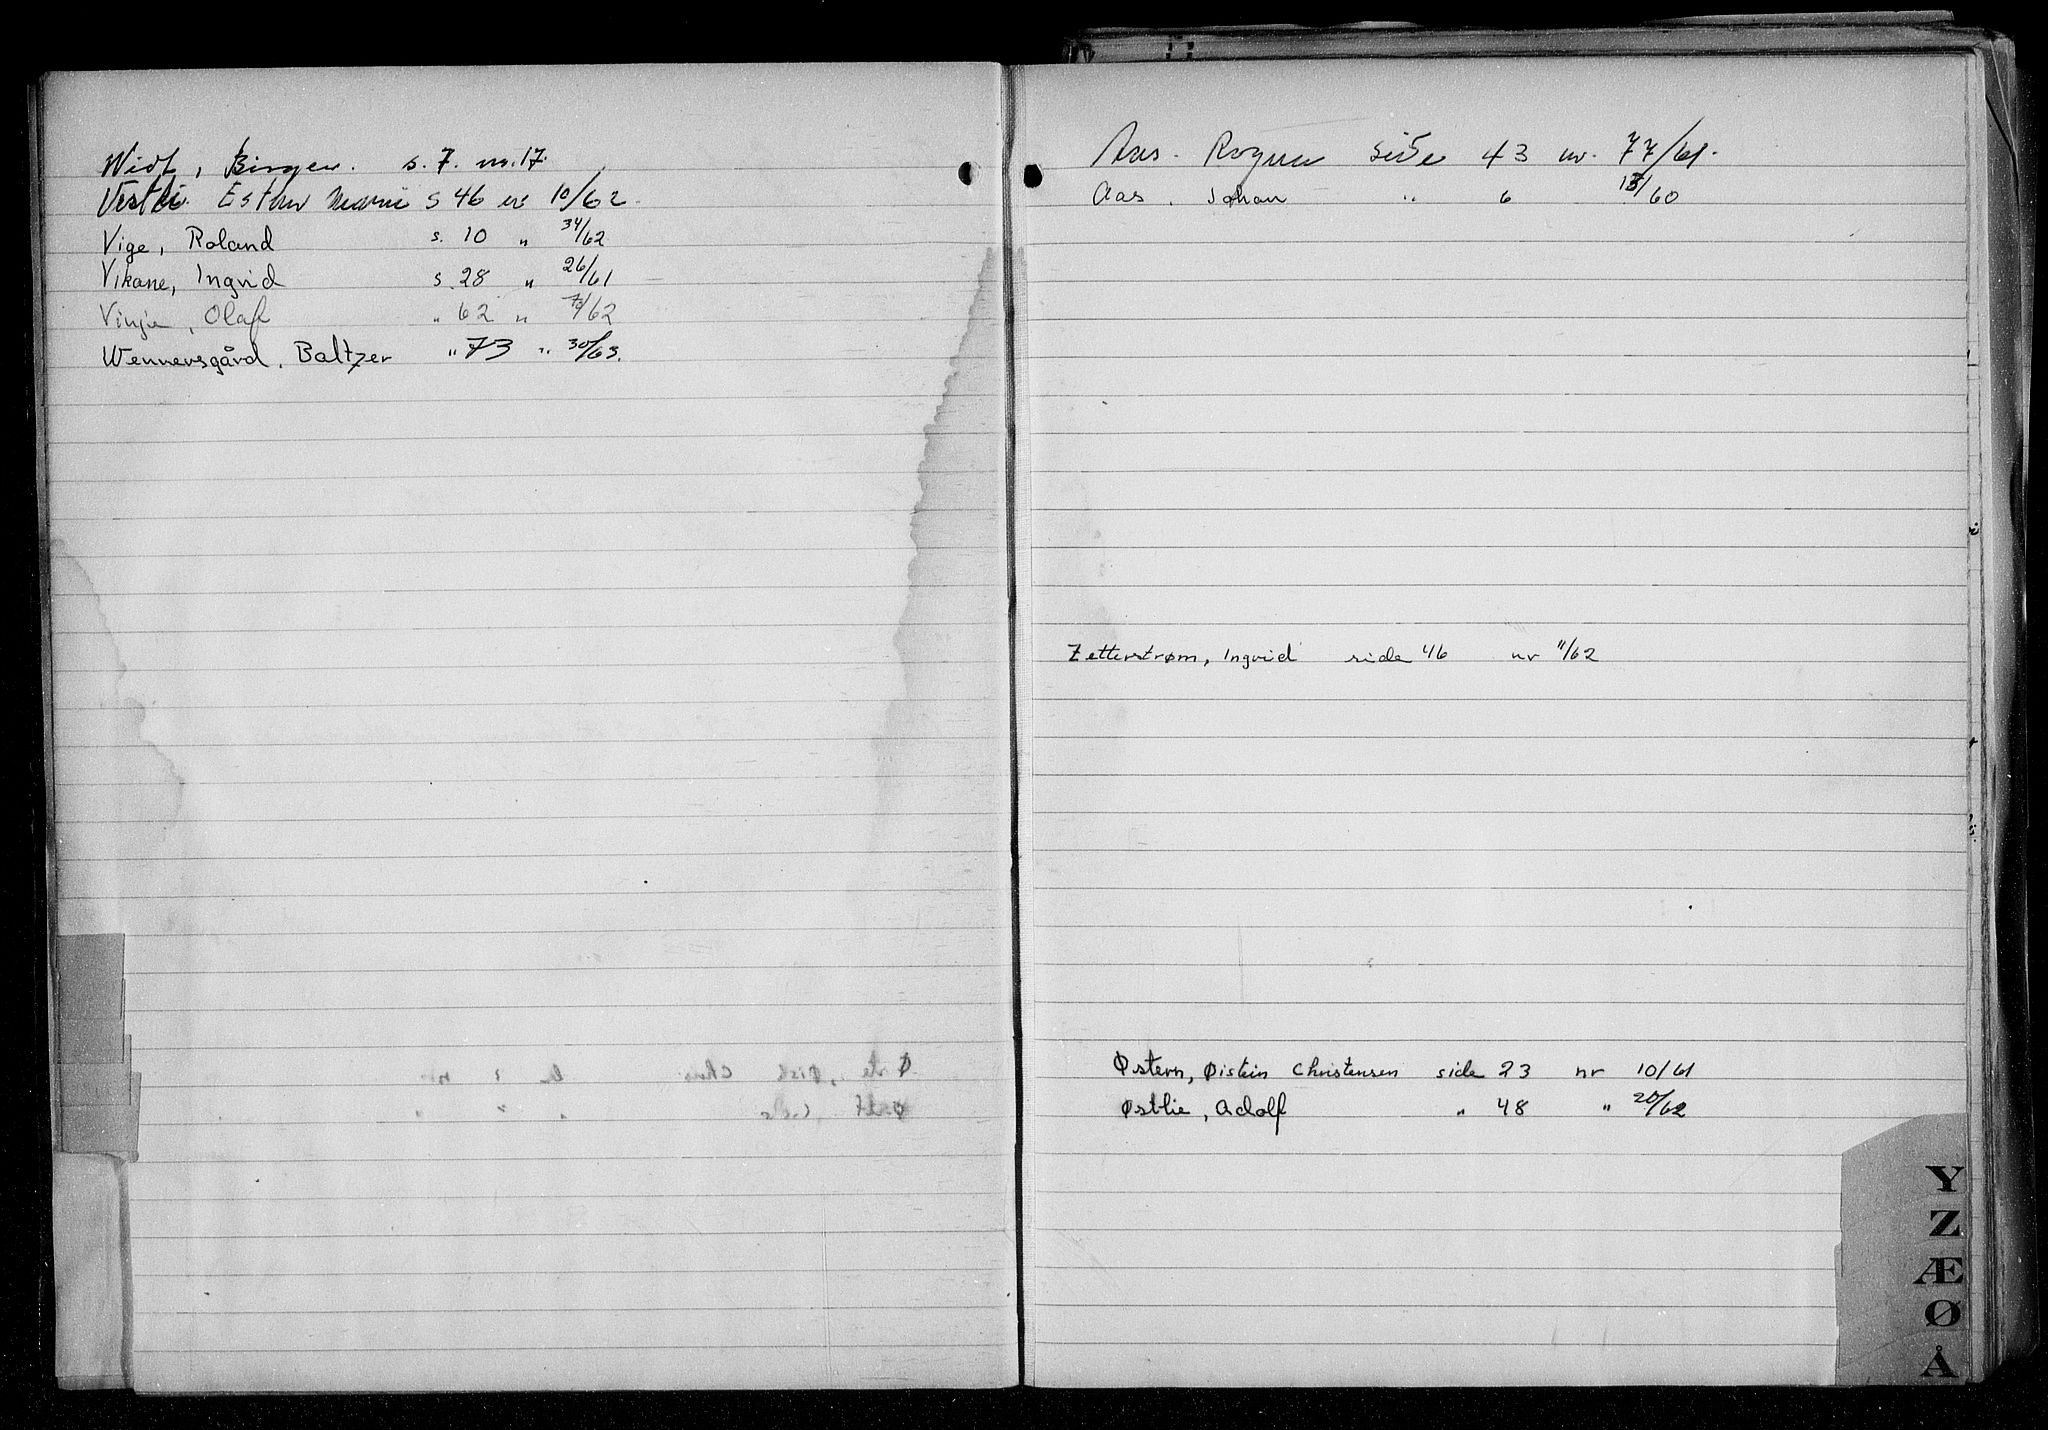 Widt, Birger. s. 7. nr. 17.
Vestli. Esther Marie s 46 nr 10/62.
Vige, Roland s. 10 " 34/62
Vikane, Ingvid s. 28 " 26/61
Vinje, Olaf " 62 " /62
Wennersgård, Baltzer " 73 " 30/63.
Aas. side 43 nr. 77/61.
Aas, Johan " 6 /60
Zetterstrøm, Ingvild side 46 nr 11/62
Østern, Øistein Christensen side 23 nr 10/61
Østlie, Adolf " 48 " 20/62
Y
Z
Æ
Ø
Å